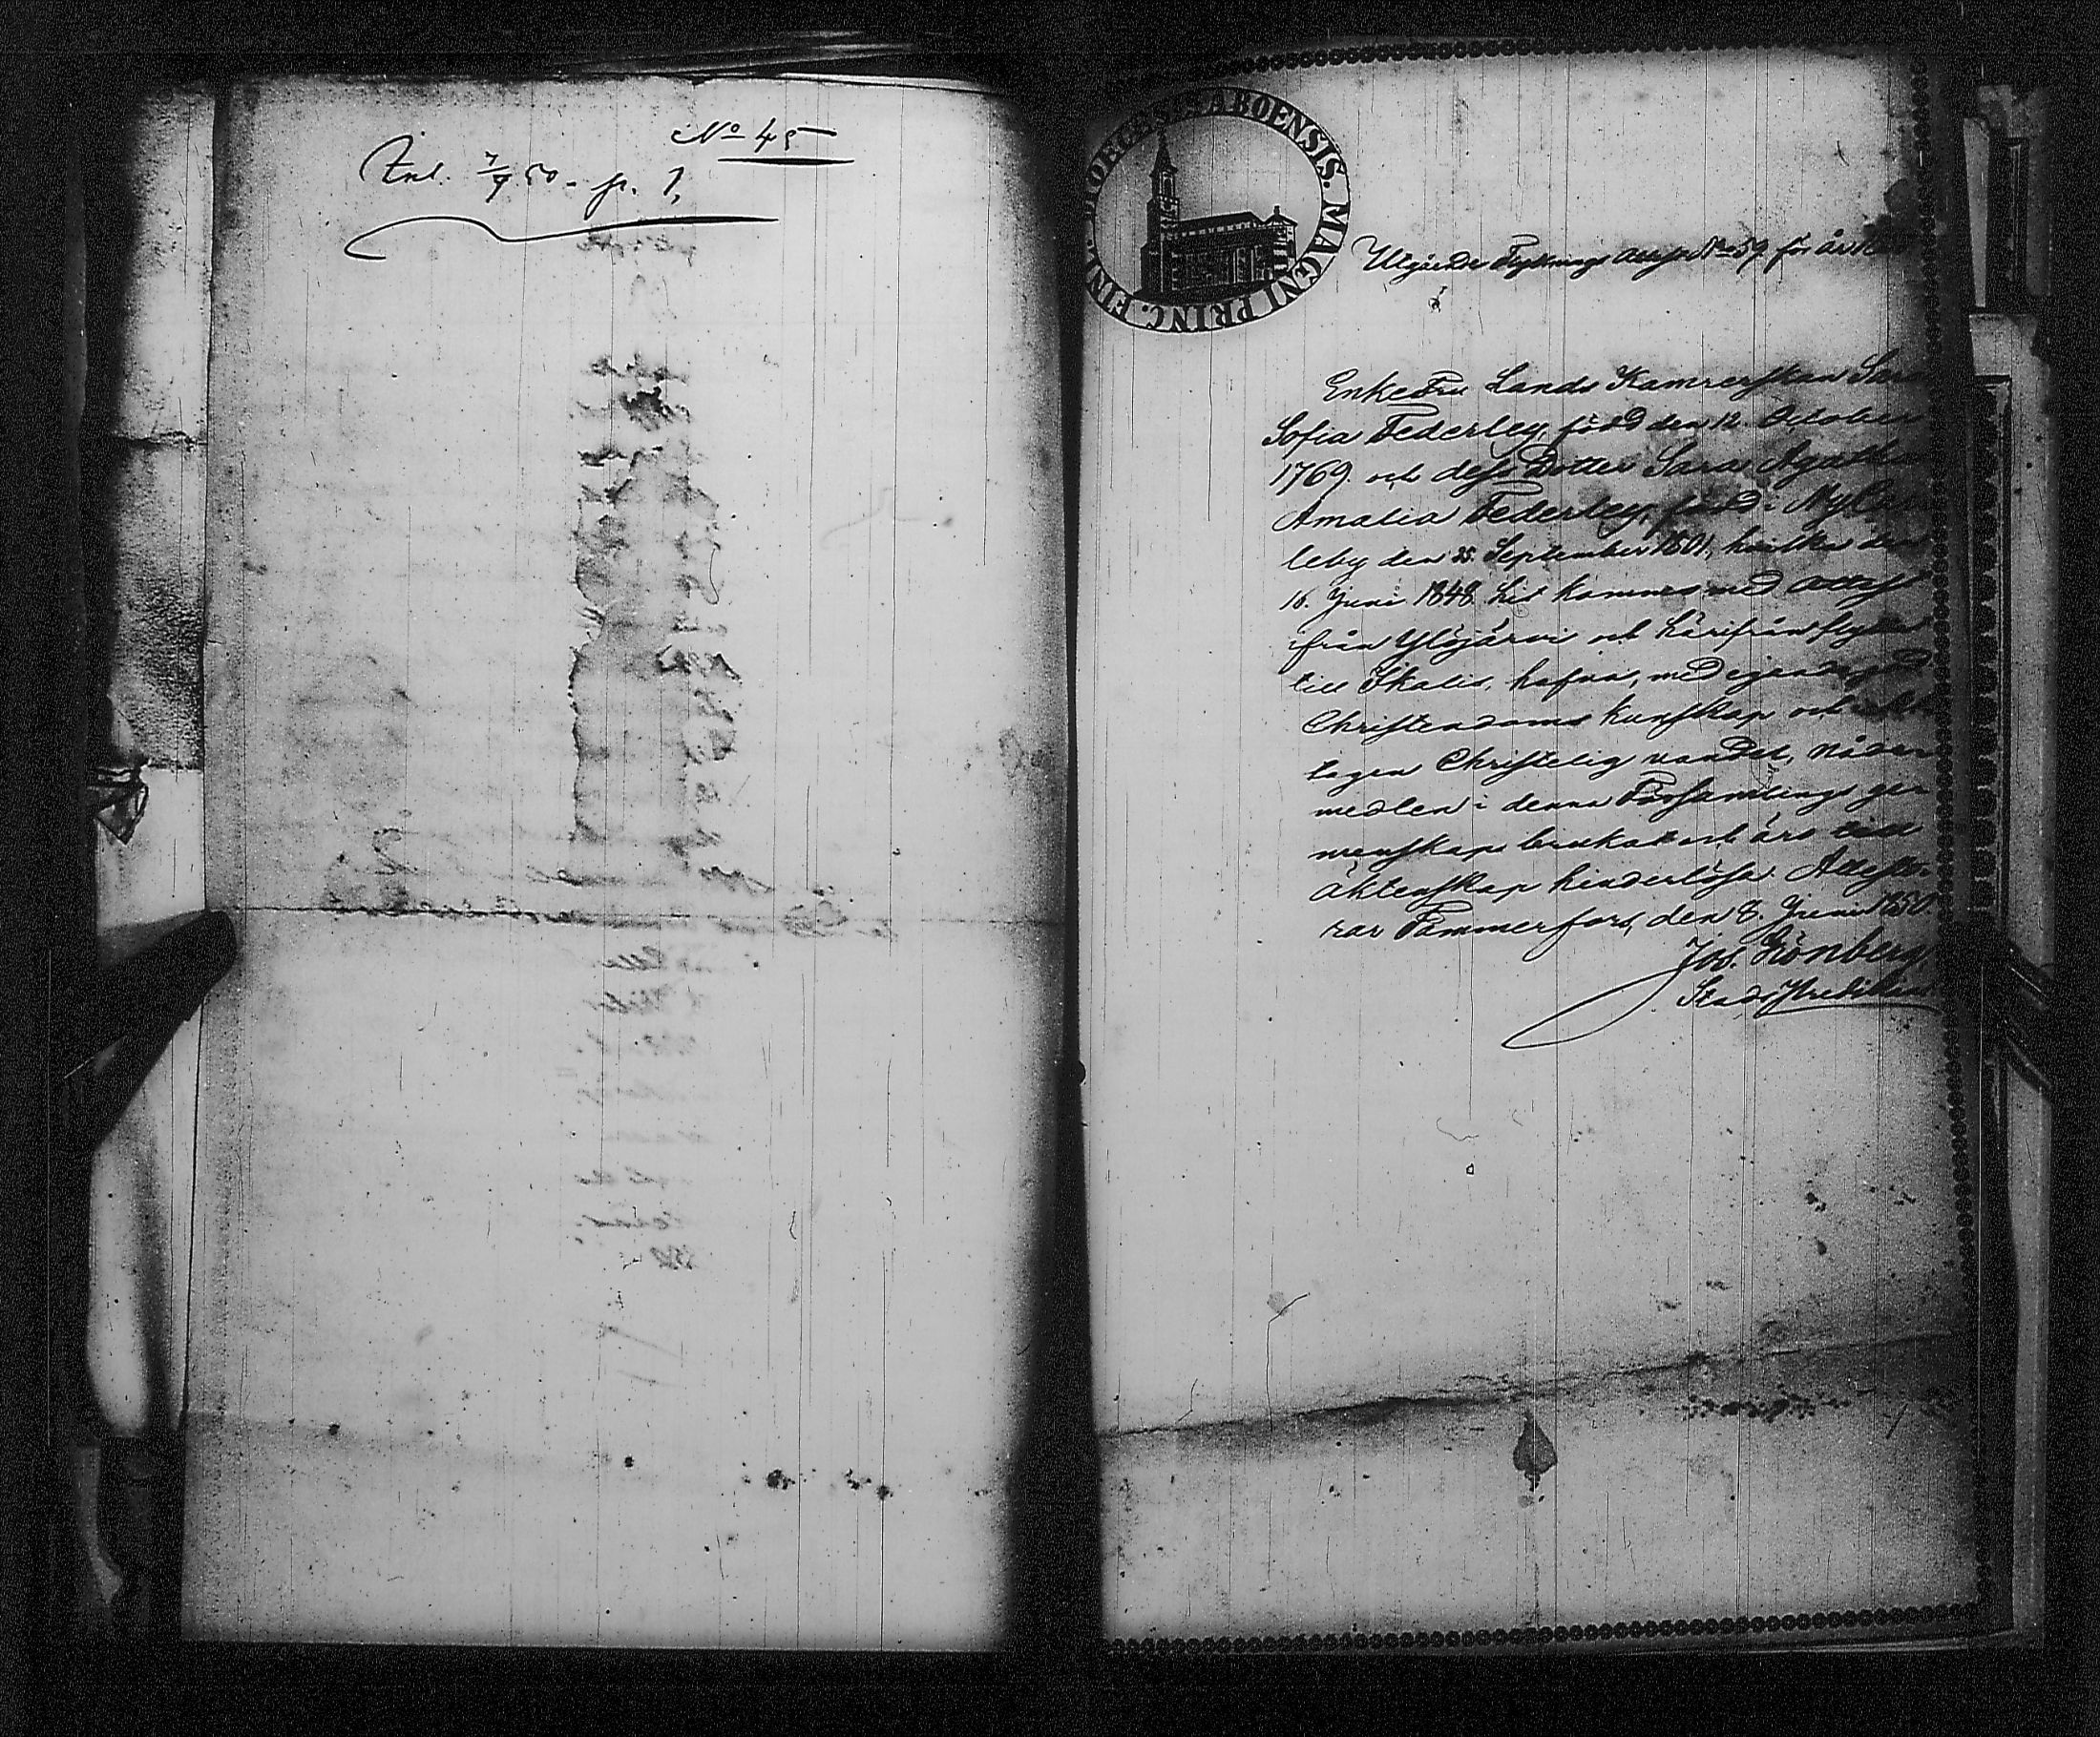 No 45
Inl. 7/9 50 - p. 1,
DIOECESIS ABOENSIS. MAGNI PRINC. FINL.
Utgående Flyttnings Attest No 59 för år
Enkefru Lands Kamrerskan Sara
Sofia Federley, född den 12. October
1769. och dess Dotter Sara Agatha
Amalia Federley, född i Nykar
leby den 25. September 1801, hvilka den
16. Juni 1848 hit kommo med attest
ifrån Ylöjärvi och härifrån flytta
till Ikalis, hafva, med egande god
Christendoms kunskap och
tagen Christelig vandel, nåde
medlen i denna Församlings ge
menskap brukat och äro till
äktenskap hinderlösa. Atteste-
rar Tammerfors, den 8. Juni 1850.
Jos. Grönberg,
Stads Predikant